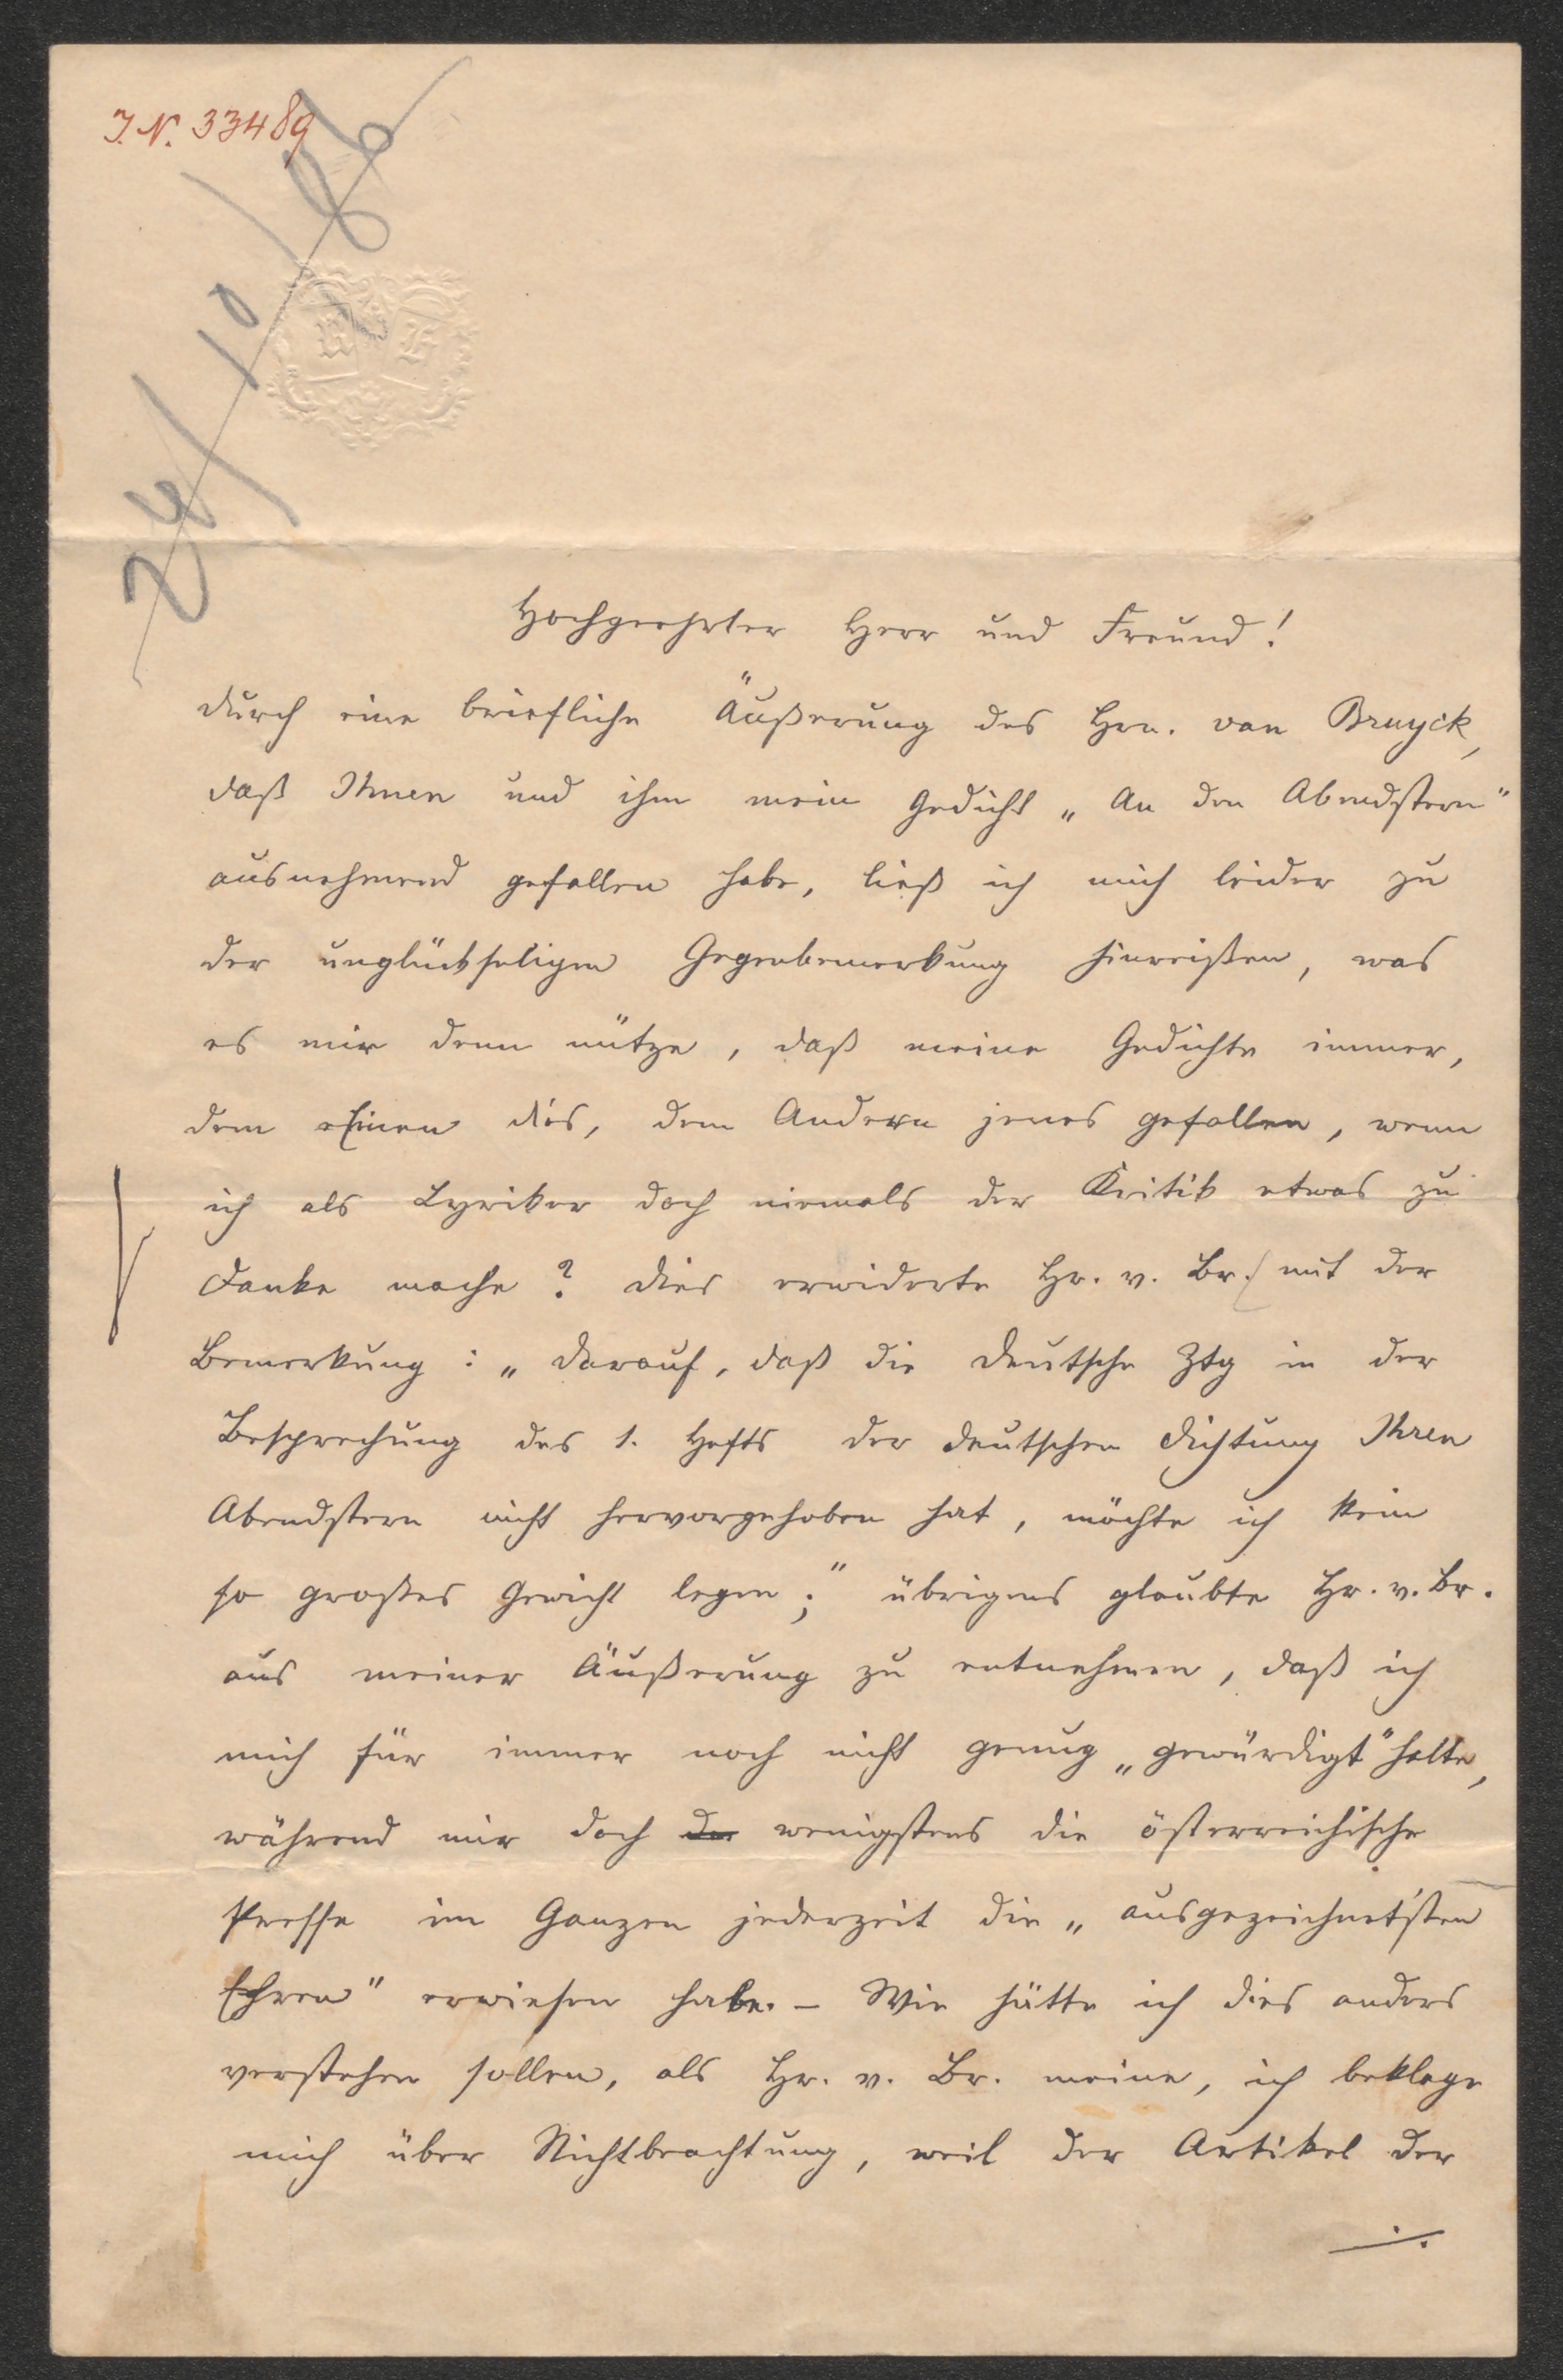 J. N. 33489
24/10/86
Hochgeehrter Herr und Freund!
durch eine briefliche Äußerung des Hrn. van Bruyck,
daß Ihnen und ihm mein Gedicht „An den Abendstern"
ausnehmend gefallen habe, ließ ich mich leider zu
der unglückseligen Gegenbemerkung hinreißen, was
es mir denn nütze, daß meine Gedichte immer,
dem Einen dies, dem Andern jenes gefallen, wenn
ich als Lyriker doch niemals der Kritik etwas zu
Danke mache? Dies erwiderte Hr. v. Br. mit der
Bemerkung: „Darauf, daß die Deutsche Ztg in der
Besprechung des 1. Hefts der deutschen Dichtung Ihren
Abendstern nicht hervorgehoben hat, möchte ich kein
so großes Gewicht legen;" übrigens glaubte Hr. v. Br.
aus meiner Äußerung zu entnehmen, daß ich
mich für immer noch nicht genug „gewürdigt" halte,
während mir doch der wenigstens die österreichische
Presse im Ganzen jederzeit die „ausgezeichnetsten
Ehren" erwiesen habe. – Wie hätte ich dies anders
verstehen sollen, als Hr. v. Br. meine, ich beklage
mich über Nichtbeachtung, weil der Artikel der